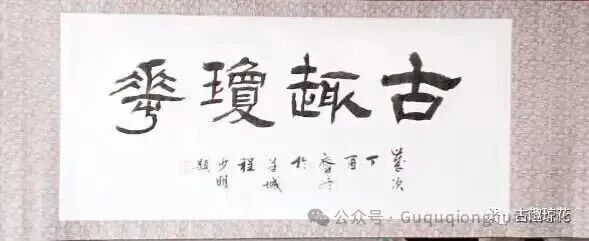 古趣瓊華
歲次丁酉於羊城程少明題
公众号·Guquqionghua
古趣琼花